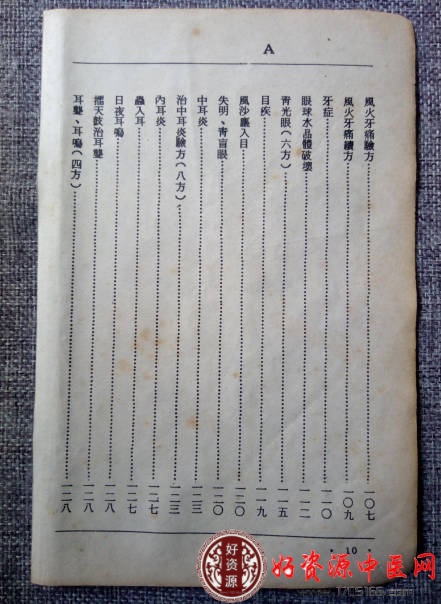 A
風火牙痛驗方……一〇七
風火牙痛續方……一〇九
牙症……一一〇
眼球水晶體破壞……一一二
青光眼(六方)……一一五
目疾……一一九
風沙塵入目……一二〇
失明、青盲眼……一二〇
中耳炎……一二三
治中耳炎驗方(八方)……一二三
內耳炎……一二七
蟲入耳……一二七
日夜耳鳴……一二八
擂天鼓治耳聾……一二八
耳聾、耳鳴(四方)……一二八
• 10 •
好资源
好资源中医网